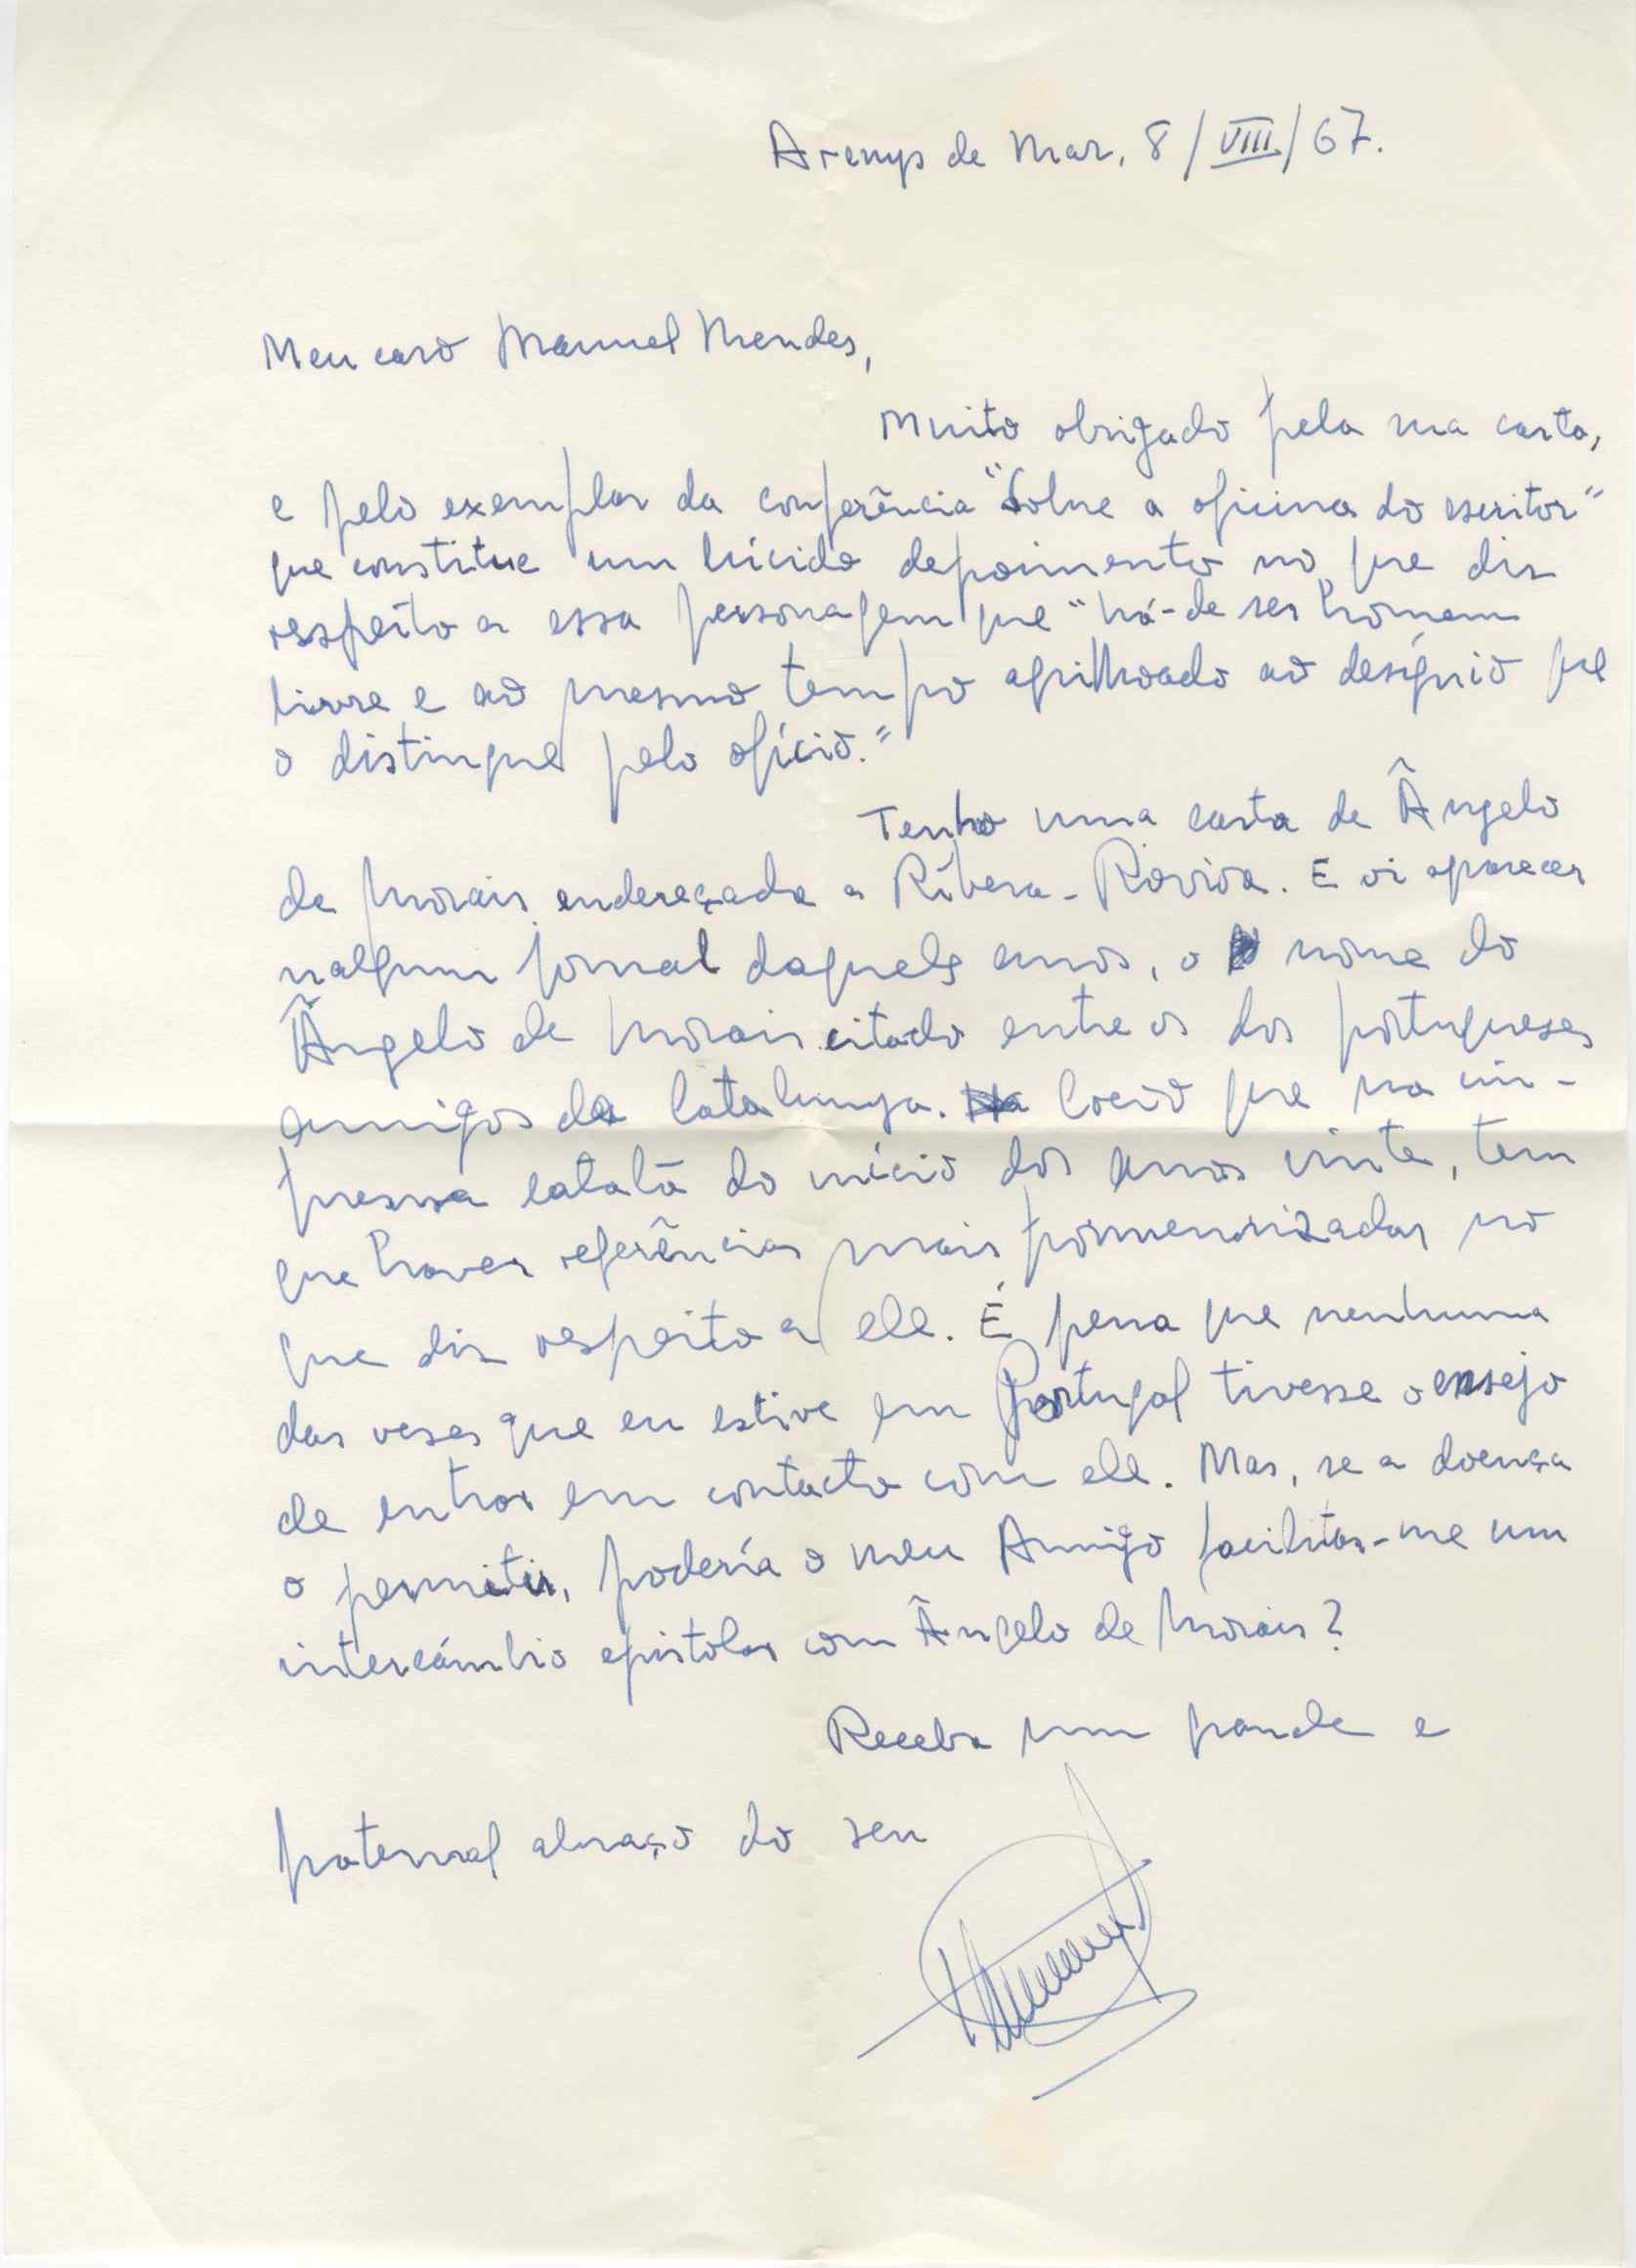 Arenys de Mar, 8/VIII/67.
Meu caro Manuel Mendes,
Muito obrigado pela sua carta,
e pelo exemplar da conferência "Sobre a oficina do escritor"
que constitue um lúcido depoimento no que diz
respeito a essa personagem que "há-de ser homem
livre e ao mesmo tempo agrilhoado ao desígnio que
o distingue pelo ofício."
Tenho uma carta de Ângelo
de Morais endereçada a Ribera-Rovira. E vi aparecer
nalgum jornal daqueles anos, o nome do
Ângelo de Morais citado entre os dos portugueses
amigos da Catalunya. Creio que na im-
prensa catalã do início dos anos vinte, tem
que haver referências mais pormenorizadas no
que diz respeito a ele. É pena que nenhuma
das veses que eu estive em Portugal tivesse o ensejo
de entrar em contacto com ele. Mas, se a doença
o permitir, podería o meu Amigo facilitar-me um
intercámbio epistolar com Ângelo de Morais?
Receba um grande e
fraternal abraço do seu